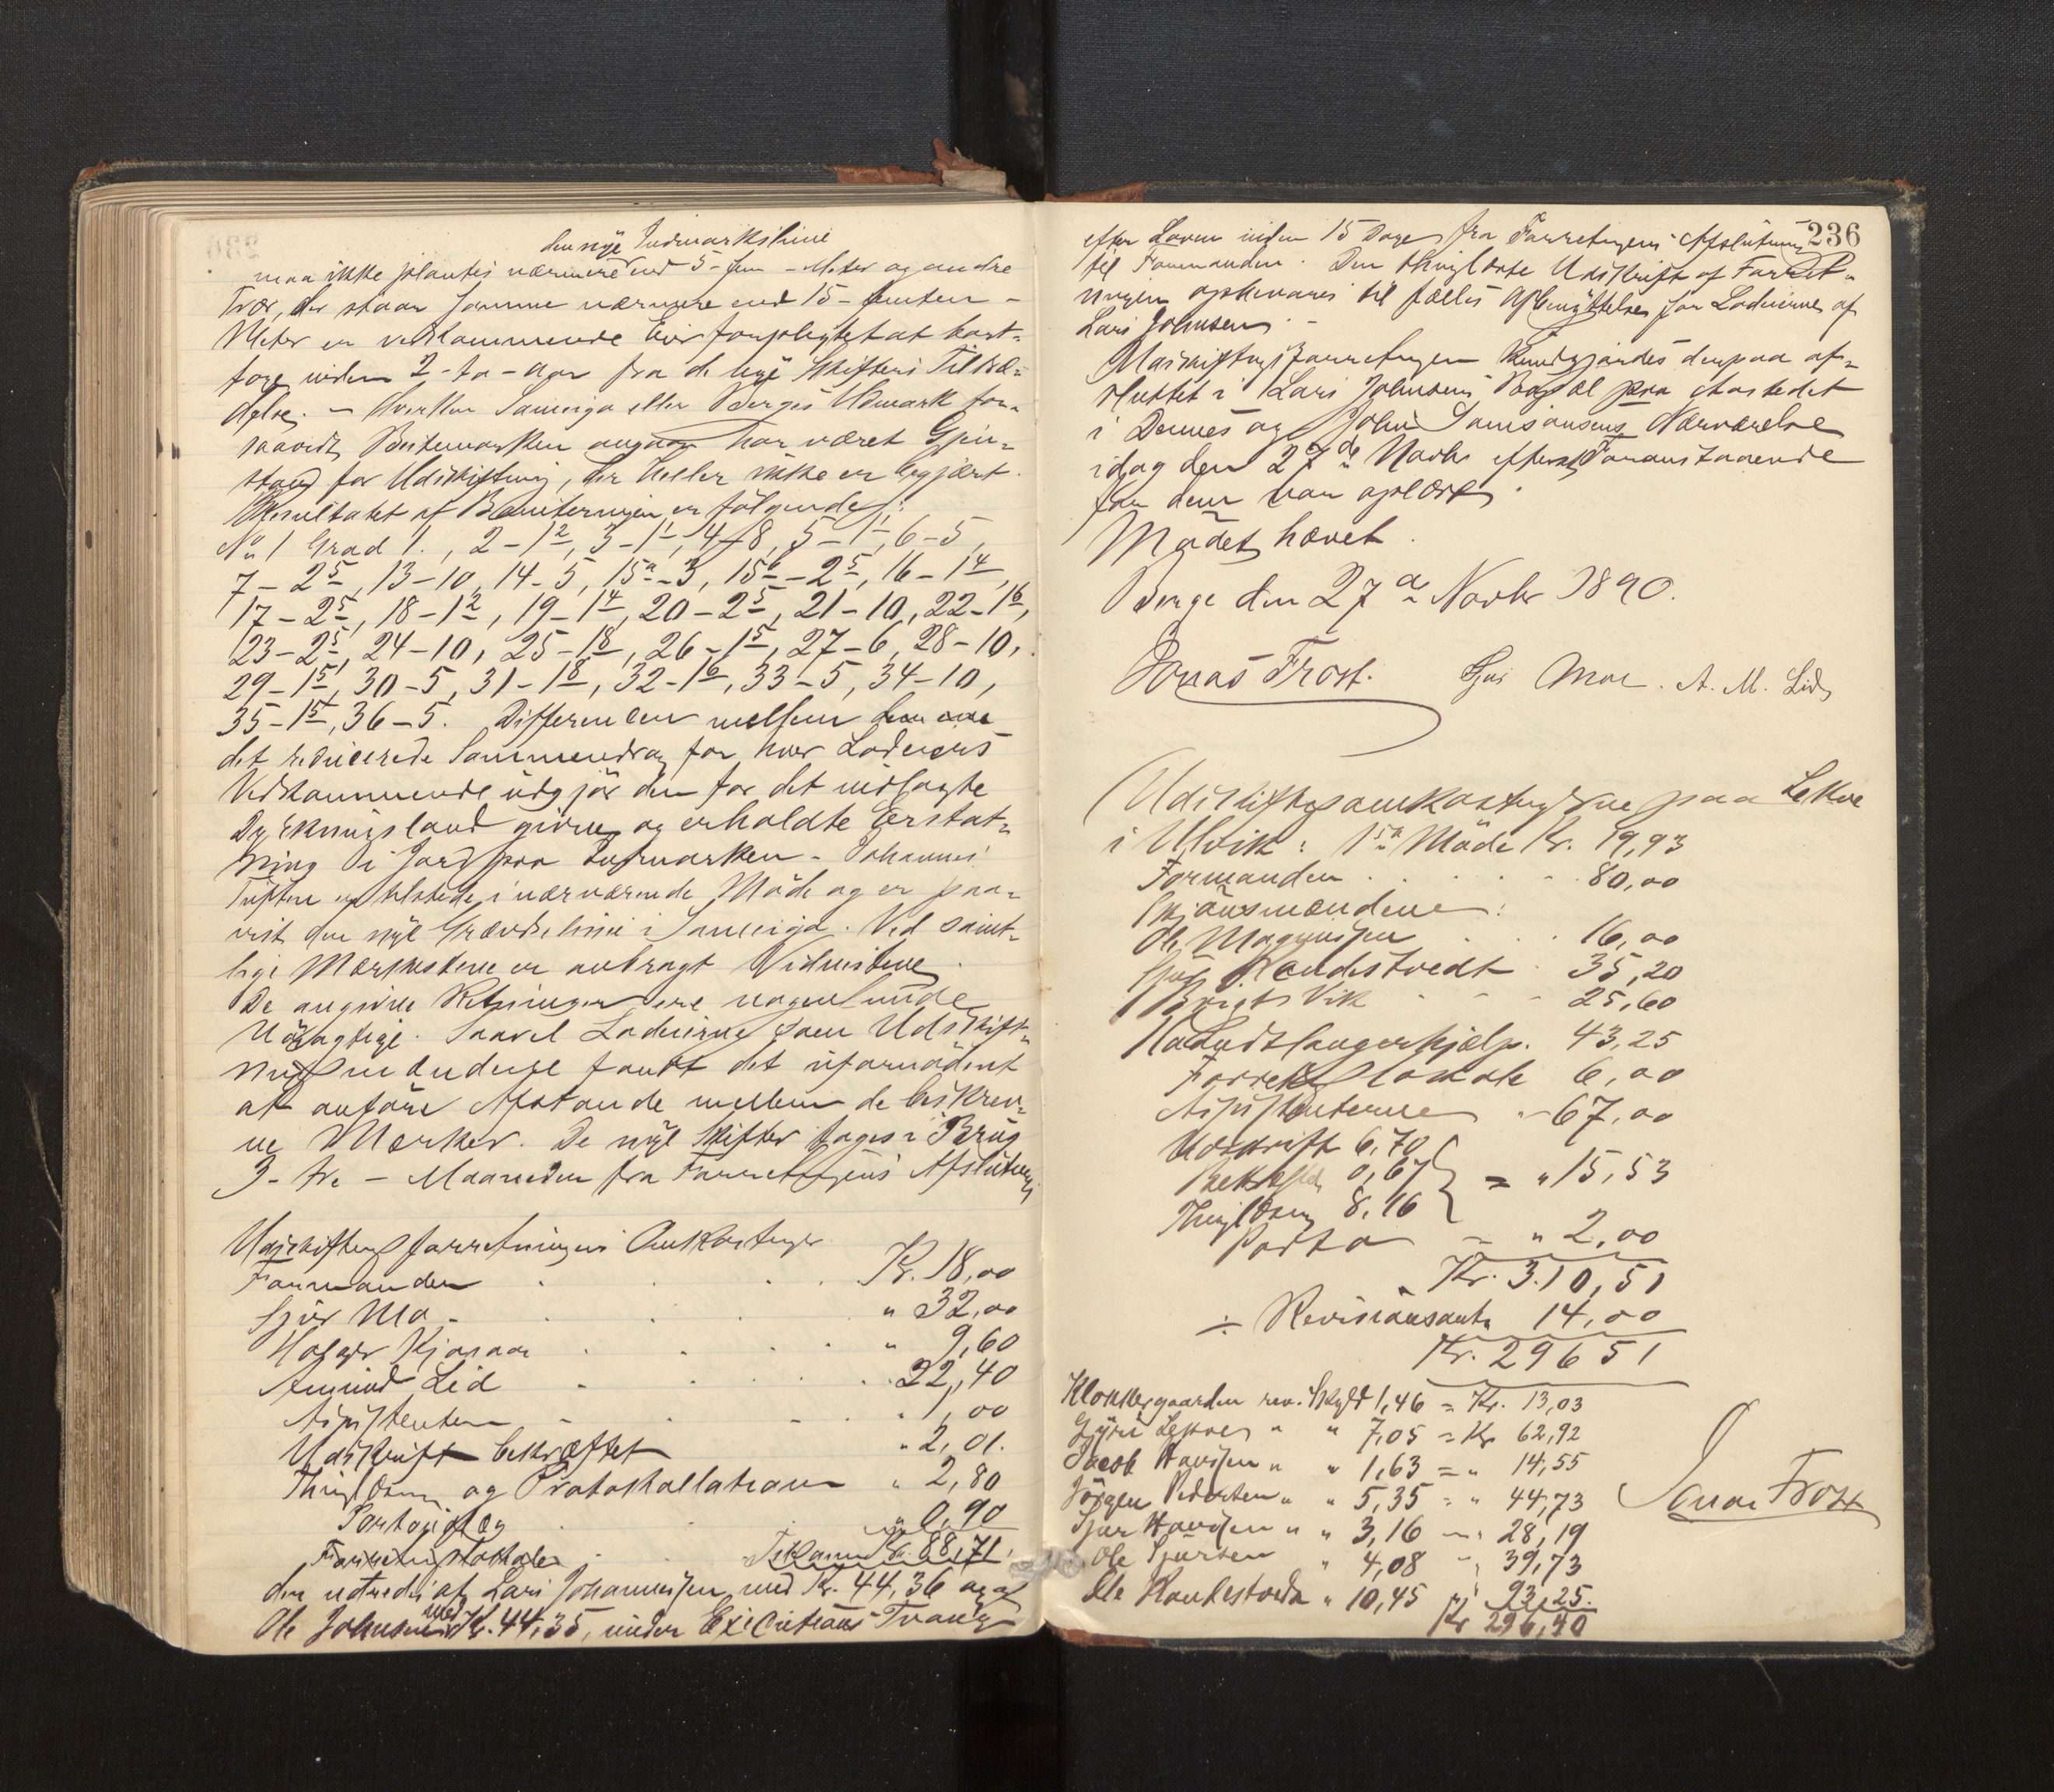 den nye Indmarkslinie
maa ikke plantes nærmere end 5-fem-Meter og andre
Trær, der staar samme nærmere end 15-femten-
Meter er vedkommende Eier forpligtet at bort-
tage inden 2-to-Aar fra de nye Skifters Tiltræ-
delse. - Hverken Sameiga eller Berges Udmark for-
saavidt Beitemarken angaar har været Gjen-
stand for Udskiftning, der heller ikke er begjært.
Resultatet af Boniteringen er følgende:
No 1 Grad 1., 2-1 2, 3-1 1, 4-8, 5-1 1, 6-5,
7-2 5, 13-10, 14-5, 15a-3, 15b-2 5, 16-1 4,
17-2 5, 18-1 2, 19-1 4, 20-2 5, 21-10, 22-1 6,
23-2 5, 24-10, 25-1 8, 26-1 5, 27-6, 28-10,
29-1 5, 30-5, 31-1 8, 32-1 6, 33-5, 34-10,
35-1 5, 36-5. Differencen mellem
det reducerede Sammendrag for hver Lodeiers
Vedkommende udgjør den for det indlagte
Dyrkningsland givne og erholdte Erstat-
ning i Jord paa Indmarken. Johannes
Tuften er tilstede i nærværende Møde og er paa-
vist den nye Grændselinie i Sameiga. Ved samt-
lige Mærkestene er anbragt Vidnestene.
De angivne Retninger ere nogenlunde
Nøiagtige. Saavel Lodeierne som Udskift-
ningsmændene fandt det ufornødent
at anføre Afstande mellem de beskrev-
ne Mærker. De nye Skifter tages i Brug
3-tre-Maaneder fra Forretningens Afslutning
Udskiftningsforretningens Omkostninger
Formanden Kr. 18,00
Sjur Mo " 32,00
Holger Kjosaas " 9,60
Amund Lid 22,40
Assistenten " 1,00
Udskrift bekræftet " 2,01.
Thinglæsn. og Protokollation " 2,80
Portoudlæg " 0,90
Forretningslokaler Tilsammen Kr. 88,71.
der udredes af Lars Johannesen med Kr. 44,36 og af
Ole Johnsen med Kr. 44,35, under Executions Tvang
236
efter Loven inden 15 Dage fra Forretningens Afslutning
til Formanden. Den thinglæste Udskrift af Forret-
ningen opbevares til fælles Afbenyttelse for Lodeierne af
Lars Johnsen.-
Udskiftningsforretningen kundgjordes derpaa af-
sluttet i Lars Johnsens Bopæl paa Aastedet
i Dennes og John Samsonsens Nærværelse
idag den 27de Novbr efterat Foranstaaende
for dem var oplæst.
Mødet hævet.
Berge den 27de Novbr 1890.
Jonas Frost. Sjur Moe. A. M. Lid
Udskiftningsomkostningerne paa Lekve
i Ulvik: 1ste Møde Kr. 19,93
Formanden 80,00
Skjønsmændene:
Ole Magnusen 16,00
Sjur Randestvedt 35,20
Brigt Vik 25,60
Haandtlangerhjælp. 43,25
Forretn.lokale 6,00
Assistenterne " 67,00
Udskrift 6,70
Bekræft. 0,67 } = " 15,53
Thinglæsn. 8,16
Porto = " 2,00
Kr. 310,51
÷ Revisionsant. 14,00
Kr. 296 51
Klokkergaarden rev. Skyld 1,46 = Kr. 13,03
Lekve " " 7,05 = Kr 62,92
Jacob Havsen " " 1,63 = " 14,55
Jørgen Pedersen " " 5,35 = " 44,73
Sjur Havsen " " 3,16 - " 28,19
Ole Sjursen " 4,08 - " 39,73
Ole Randestvedt " 10,45 93,25.
Kr 296,40
Jonas Frost